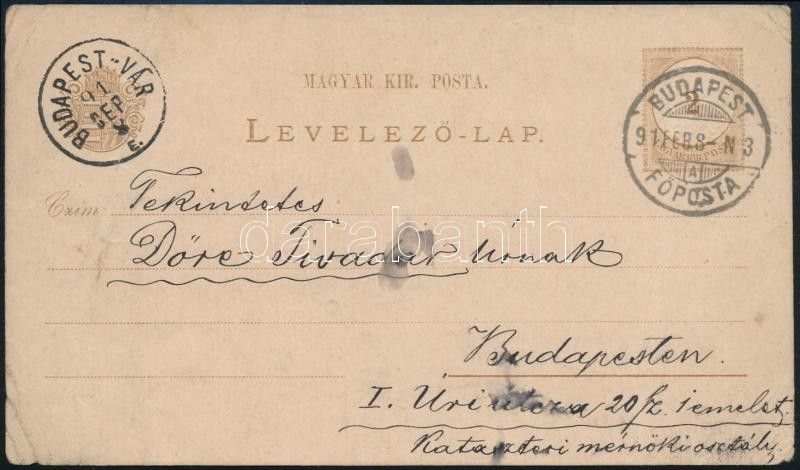 MAGYAR KIR. POSTA.
LEVELEZŐ-LAP.
BUDAPEST-VÁR
91
SEP
E.
2
MAGYAR KIR. POSTA
BUDAPEST
91 FEB. 8- N 3
A
FŐPOSTA
Czim
Tekintetes
Dőre Tivadar Úrnak
darabanth
Budapesten.
I. Úri utcza 20/z. 1 emelet,
Kataszteri mérnöki osztály.